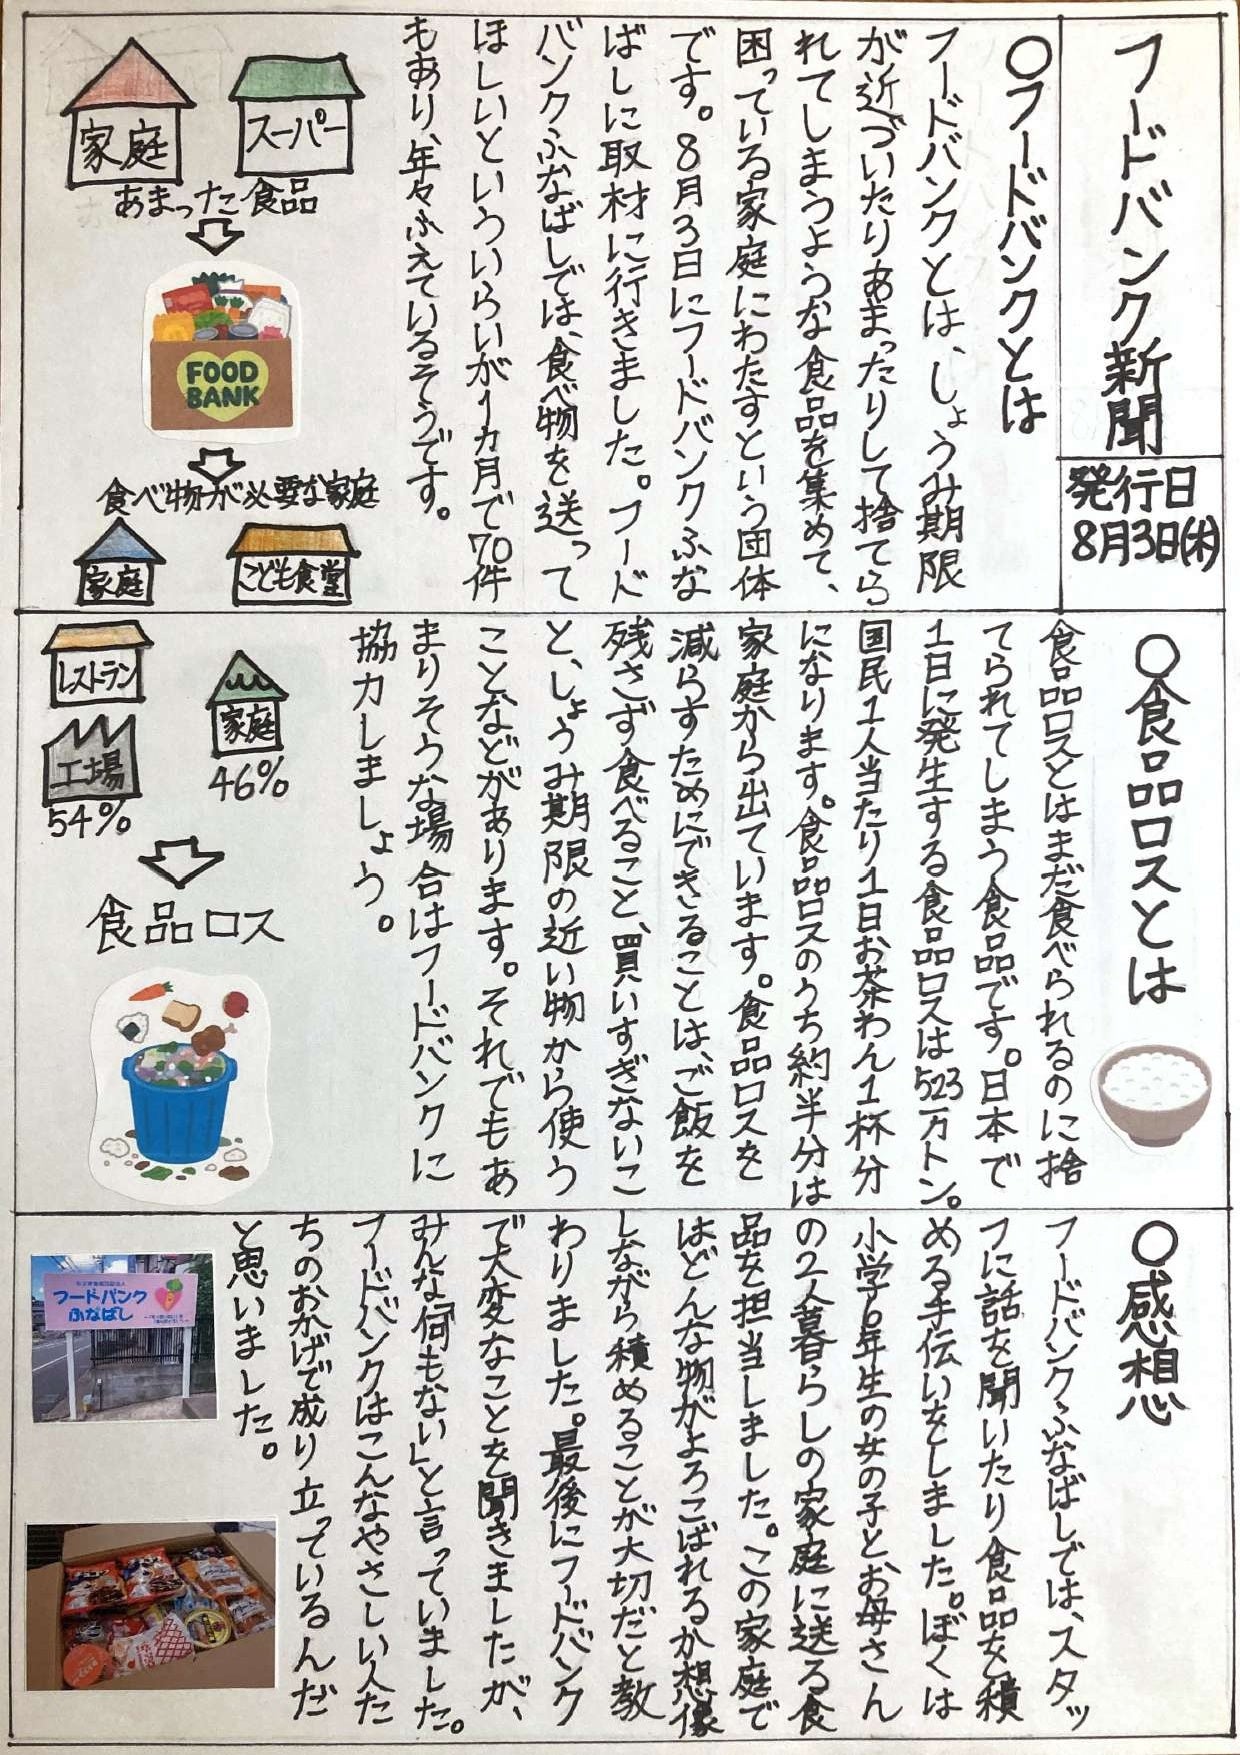 フードバンク新聞
発行日
8月3日(水)
○フードバンクとは
フードバンクとは、しょうみ期限
が近づいたりあまったりして捨てら
れてしまうような食品を集めて、
困っている家庭にわたすという団体
です。8月3日にフードバンクふな
ばしに取材に行きました。フード
バンクふなばしでは、食べ物を送って
ほしいといういらいが1カ月で70件
もあり、年々ふえているそうです。
スーパー
家庭
あまった食品
FOOD
BANK
食べ物が必要な家庭
こども食堂
家庭
○食品ロスとは
食品ロスとはまだ食べられるのに捨
てられてしまう食品です。日本で
1日に発生する食品ロスは523万トン。
国民1人当たり1日お茶わん1杯分
になります。食品ロスのうち約半分は
家庭から出ています。食品ロスを
減らすためにできることは、ご飯を
残さず食べること、買いすぎないこ
と、しょうみ期限の近い物から使う
ことなどがあります。それでもあ
まりそうな場合はフードバンクに
協力しましょう。
家庭
46%
レストラン
工場
54%
食品ロス
○感想
フードバンクふなばしでは、スタッ
フに話を聞いたり食品を積
める手伝いをしました。ぼくは
小学6年生の女の子とお母さん
の2人暮らしの家庭に送る食
品を担当しました。この家庭で
はどんな物がよろこばれるか想像
しながら積めることが大切だと教
わりました。最後にフードバンク
で大変なことを聞きましたが、
みんな「何もない」と言っていました。
フードバンクはこんなやさしい人た
ちのおかげで成り立っているんだ
と思いました。
フードバンク
ふなばし